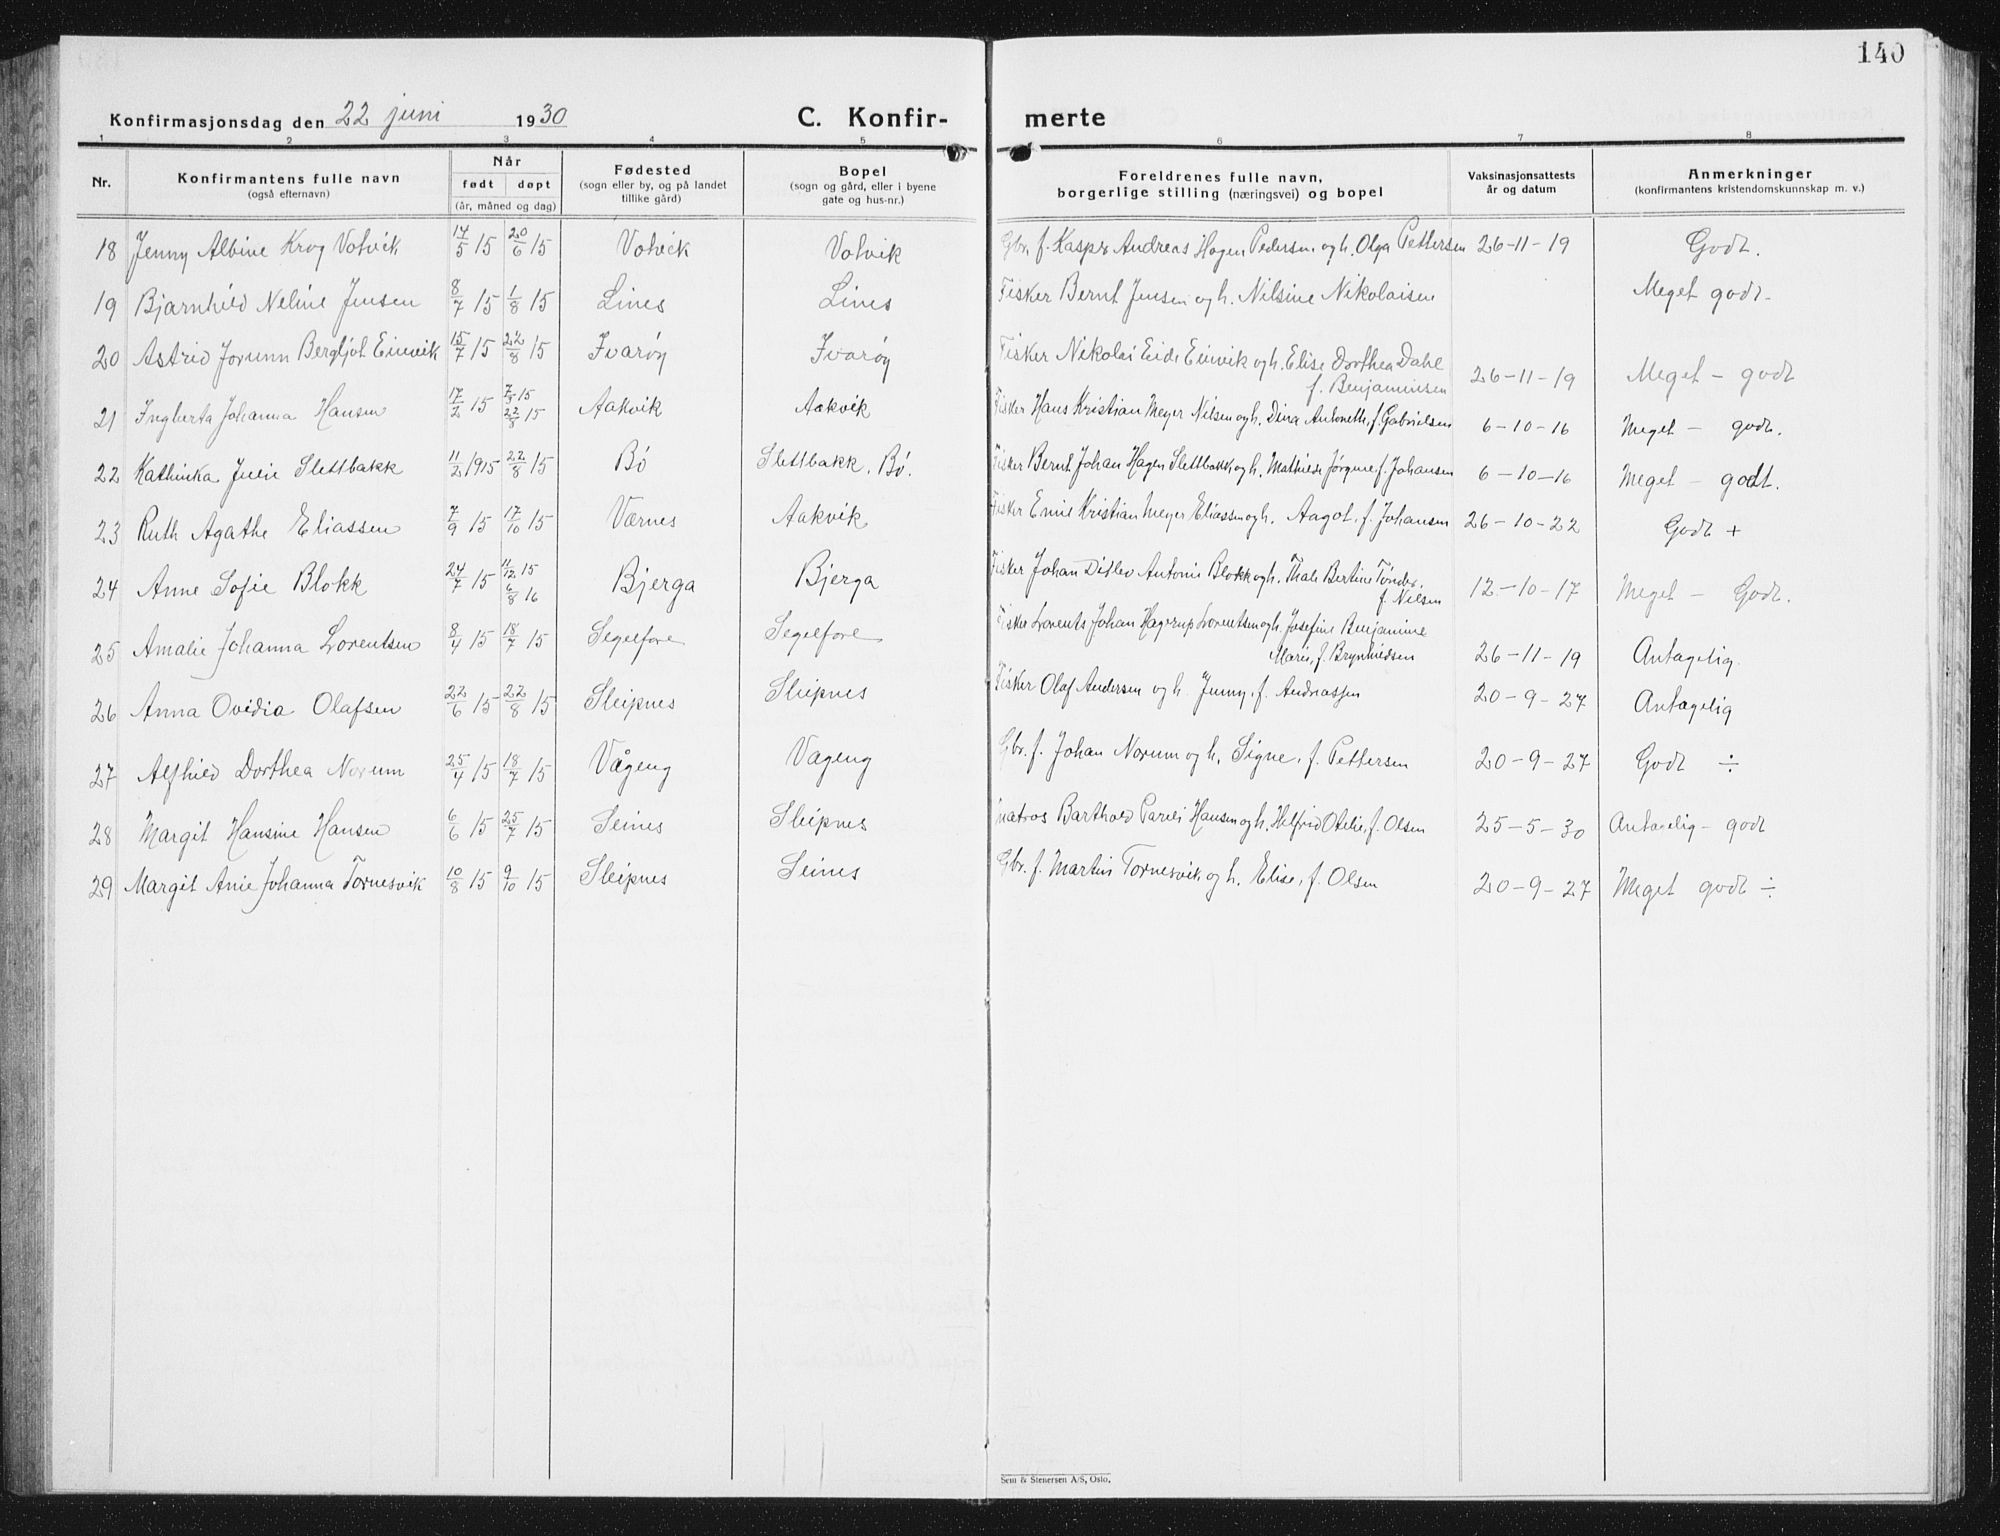 140
Konfirmasjonsdag den 22 juni 1930 C. Konfir- merte
1 2 3 4 5 6 7 8
Nr. Konfirmantens fulle navn (også efternavn) Når født døpt (år, måned og dag) Fødested (sogn eller by, og på landet tillike gård) Bopel (sogn og gård, eller i byene gate og hus-nr.) Foreldrenes fulle navn, borgerlige stilling (næringsvei) og bopel Vaksinasjonsattests år og datum Anmerkninger (konfirmantens kristendomskunnskap m. v.)
18 Jenny Albine Krog Votvik 17/5 15 20/6 15 Votvik Votvik Gbr. f. Kaspr Andreas Hagen Pedersen og h. Olga Pettersen 26-11-19 Godt.
19 Bjarnhild Neline Jensen 8/7 15 1/8 15 Lines Lines Fisker Bernt Jensen og h. Nilsine Nikolaisen Meget godt-
20 Astrid Jorunn Bergljot Einvik 15/7 15 22/8 15 Ivarøy Ivarøy Fisker Nikolai Eide Einvik og h. Elise Dorthea Dahl f. Benjaminsen 26-11-19 Meget - godt
21 Ingberta Johanna Hansen 17/2 15 22/8 15 Aakvik Aakvik Fisker Hans Kristian Meyer Nilsen og h. Dina Antoneth, f. Gabrielsen 6-10-16 Meget - godt.
22 Kathinka Julie Slettbakk 11/2 1915 22/8 15 Bø Slettbakk, Bø. Fisker Bernt Johan Hagen Slettbakk og h. Mathilde Jørgine, f. Johansen 6-10-16 Meget - godt.
23 Ruth Agathe Eliassen 7/9 15 17/10 15 Værnes Aakvik Fisker Emil Kristian Meyer Eliassen og h. Aagot, f. Johansen 26-10-22 Godt +
24 Anne Sofie Blokk 24/7 15 11/12 15 6/8 16 Bjerga Bjerga Fisker Johan Ditlev Antonie Blokk og h. Thale Bertine Tønder, f. Nilsen 12-10-17 Meget - Godt.
25 Amalie Johanna Lorentsen 8/4 15 18/7 15 Segelfore Segelfore Fisker Lorents Johan Hagerup Lorentsen og h. Josefine Benjamine Marie, f. Brynhildsen 26-11-19 Antagelig.
26 Anna Ovidia Olafsen 22/6 15 22/8 15 Sleipnes Sleipnes Fisker Olaf Andersen og h. Jenny, f. Andreassen 20-9-27 Antagelig
27 Alfhild Dorthea Norum 25/4 15 18/7 15 Vågeng Vageng Gbr. f. Johan Norum og h. Signe, f. Pettersen 20-9-27 Godt ÷
28 Margit Hansine Hansen 6/6 15 25/7 15 Seines Sleipnes Matros Barthold Pareli Hansen og h. Helfrid Otelie, f. Olsen 25-5-30 Antagelig - godt
29 Margit Anie Johanna Tornesvik 10/8 15 9/10 15 Sleipnes Seines Gbr. f. Martin Tornesvik og h. Elise, f. Olsen 20-9-27 Meget godt ÷
Sem & Stenersen A/S, Oslo.